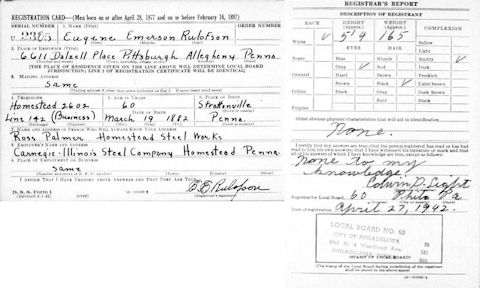 REGISTRATION CARD—(Men born on or after April 28, 1877 and on or before February 16, 1897)
SERIAL NUMBER
1. NAME (Print)
ORDER NUMBER
U
Eugene Emerson Rulofson
2. PLACE OF RESIDENCE (Print)
6611 Dalzell Place Pittsburgh Allegheny Penna.
THE PLACE OF RESIDENCE GIVEN ON THE LINE ABOVE WILL DETERMINE LOCAL BOARD
JURISDICTION; LINE 2 OF REGISTRATION CERTIFICATE WILL BE IDENTICAL
3. MAILING ADDRESS
Same
4. TELEPHONE
5. AGE IN YEARS
6. PLACE OF BIRTH
Homestead 2602
60
Strattanville
DATE OF BIRTH
Line 142 (Business)
March 19 1882
Penna.
7. NAME AND ADDRESS OF PERSON WHO WILL ALWAYS KNOW YOUR ADDRESS
Ross Palmer Homestead Steel Works
8. EMPLOYER'S NAME AND ADDRESS
Carnegie-Illinois Steel Company Homestead Penna
9. PLACE OF EMPLOYMENT OR BUSINESS
Same
I AFFIRM THAT I HAVE VERIFIED ABOVE ANSWERS AND THAT THEY ARE TRUE.
D. S. S. Form 1
(Revised 4-1-42)
E E Rulofson
REGISTRAR'S REPORT
DESCRIPTION OF REGISTRANT
RACE
HEIGHT (Approx.)
WEIGHT (Approx.)
COMPLEXION
White
5 9
165
Sallow
Light
EYES
HAIR
Ruddy
Dark
Negro
Blue
Blonde
Gray
Red
Freckled
Oriental
Hazel
Brown
Light brown
Brown
Black
Dark brown
Indian
Black
Gray
Black
Bald
Other obvious physical characteristics that will aid in identification
None.
None to my
knowledge.
Registrar for Local Board
60
Phila
Pa
Date of registration
April 27, 1942.
LOCAL BOARD NO. 60
CITY OF PHILADELPHIA
PHILADELPHIA
(STAMP OF LOCAL BOARD)
(The stamp of the Local Board having jurisdiction of the registrant
shall be placed in the above space)